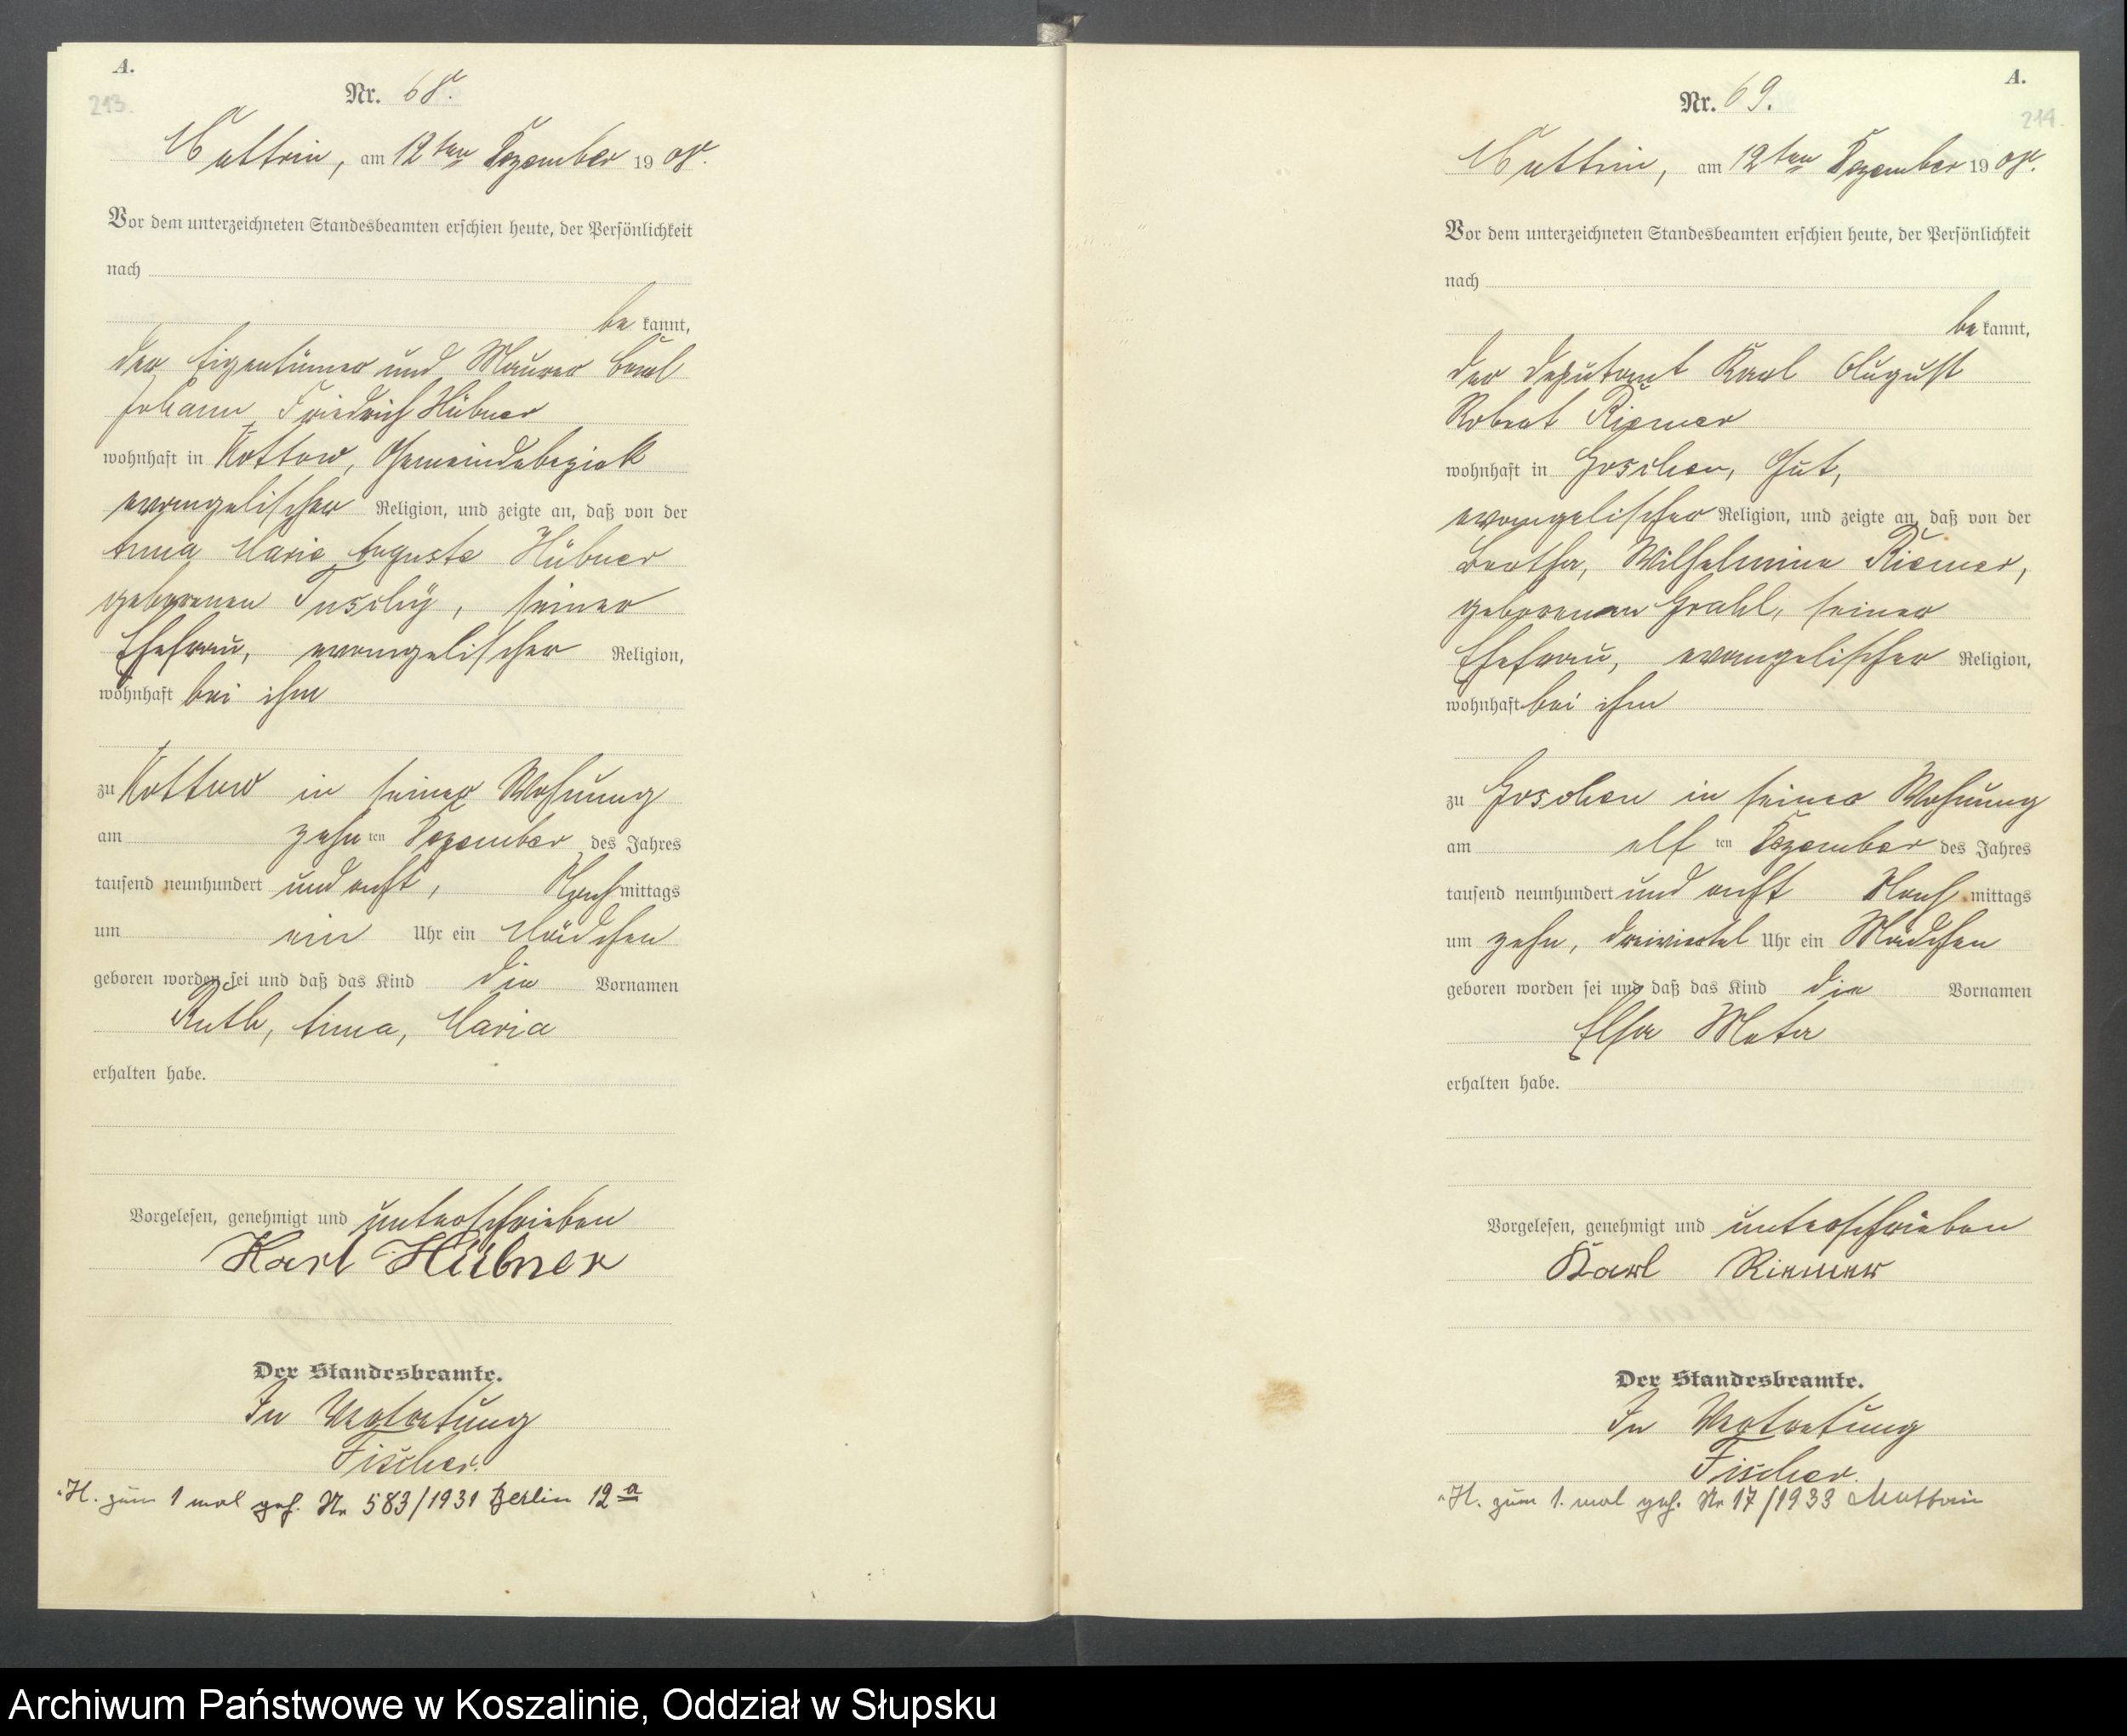 A.
213.
Nr. 68.
Muttrin, am 12ten Dezember 1908.
Vor dem unterzeichneten Standesbeamten erschien heute, der Persönlichkeit
nach
be kannt,
der Eigentümer und Maurer Carl
Johann Friedrich Hübner
wohnhaft in Kottow, Gemeindebezirk
evangelischer Religion, und zeigte an, daß von der
Anna Marie Auguste Hübner
geborenen Tuschy, seiner
Ehefrau, evangelischer Religion,
wohnhaft bei ihm
zu Kottow in seiner Wohnung
am zehn ten Dezember des Jahres
tausend neunhundert und acht, Nach mittags
um ein Uhr ein Mädchen
geboren worden sei und daß das Kind die Vornamen
Ruth, Anna, Maria
erhalten habe.
Vorgelesen, genehmigt und unterschrieben
Karl Hübner
Der Standesbeamte.
In Vertretung
Fischer.
H. zum 1 mal geh. Nr 583/1931 Berlin 12a
A.
214.
Nr. 69.
Muttrin, am 12ten Dezember 1908.
Vor dem unterzeichneten Standesbeamten erschien heute, der Persönlichkeit
nach
be kannt,
der Deputant Karl August
Robert Riemer
wohnhaft in Goschen, Gut,
evangelischer Religion, und zeigte an, daß von der
Bertha, Wilhelmine Riemer,
geborenen Grahl, seiner
Ehefrau, evangelischer Religion,
wohnhaft bei ihm
zu Goschen in seiner Wohnung
am elf ten Dezember des Jahres
tausend neunhundert und acht Nach mittags
um zehn, dreiviertel Uhr ein Mädchen
geboren worden sei und daß das Kind die Vornamen
Elsa Meta
erhalten habe.
Vorgelesen, genehmigt und unterschrieben
Karl Riemer
Der Standesbeamte.
In Vertretung
Fischer.
H. zum 1. mal geh. Nr 17/1933 Muttrin
Archiwum Państwowe w Koszalinie, Oddział w Słupsku